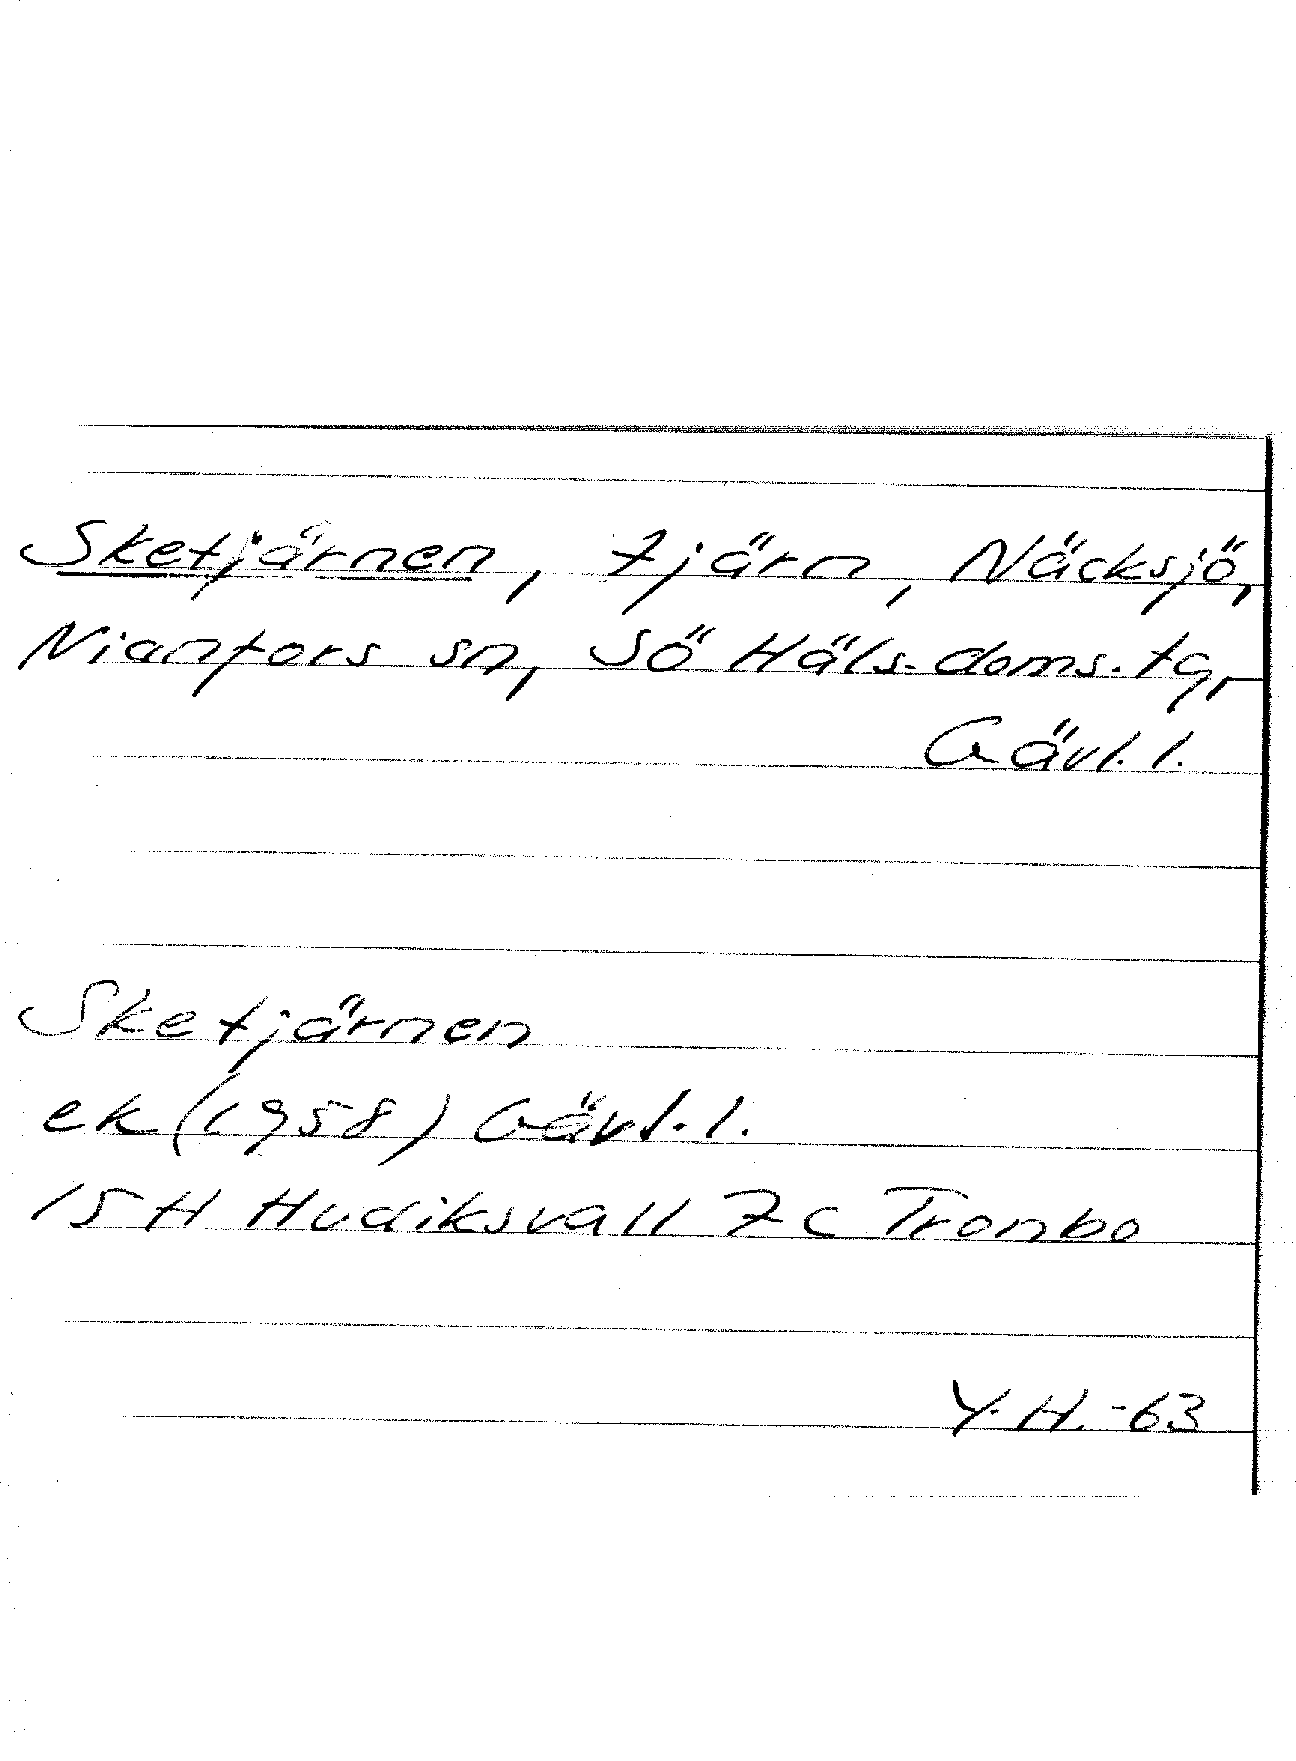 Sketjärnen, tjärn, Näcksjö,
Nianfors sn, Sö Häls. doms. tg,
Gävl. l.
Sketjärnen
ek (1958) Gävl. l.
15 H Hudiksvall 7 c Tronbo
Y. H. -63